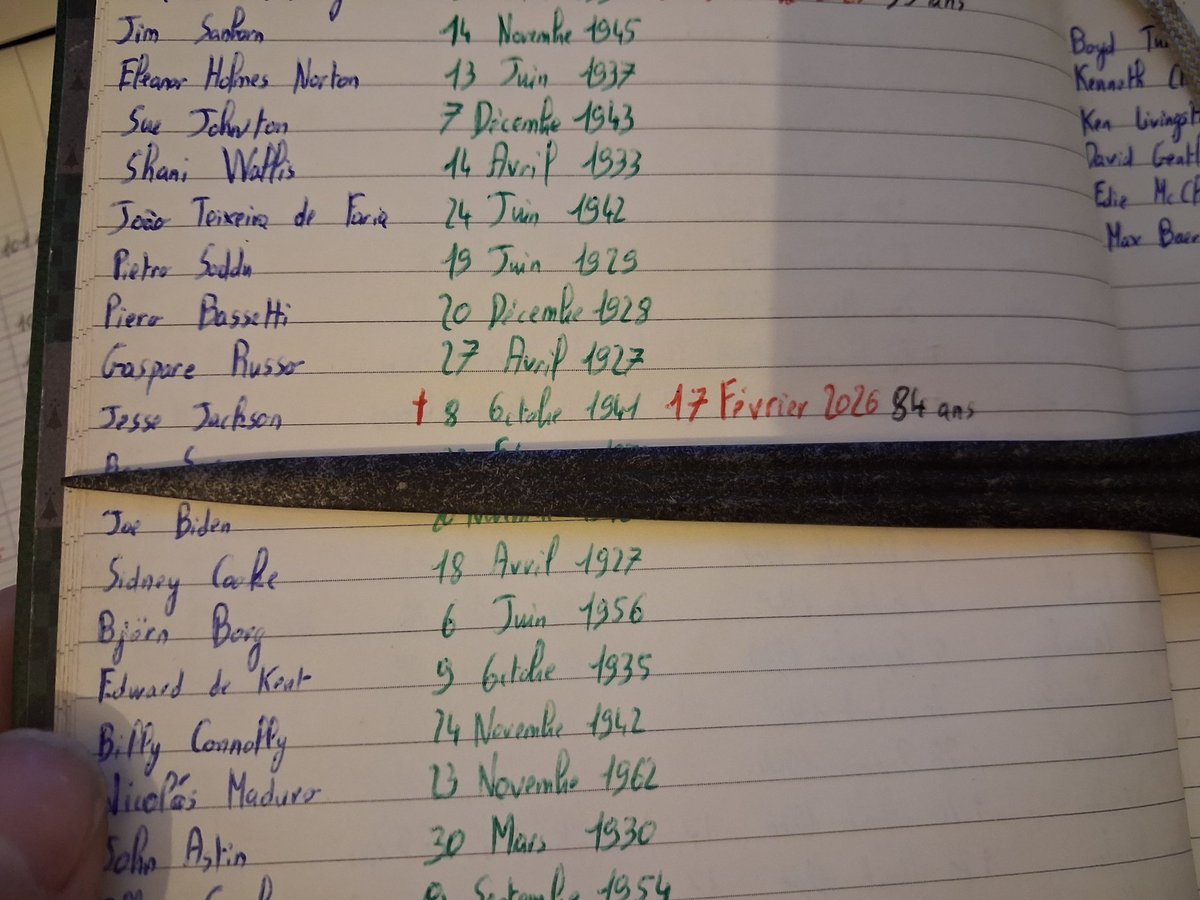 ans
Jim Sanborn 14 Novembre 1945
Eleanor Holmes Norton 13 Juin 1937
Sue Johnston 7 Décembre 1943
Shani Wallis 14 Avril 1933
João Teixeira de Faria 24 Juin 1942
Pietro Soddu 19 Juin 1929
Piero Bassetti 20 Décembre 1928
Gaspare Russo 27 Avril 1927
Jesse Jackson † 8 Octobre 1941 17 Février 2026 84 ans
Joe Biden
Sidney Cooke 18 Avril 1927
Björn Borg 6 Juin 1956
Edward de Kent 9 Octobre 1935
Billy Connolly 24 Novembre 1942
Nicolás Maduro 23 Novembre 1962
John Astin 30 Mars 1930
Septembre 1954
Boyd
Kenneth
Ken
David
Edie
Max Baer